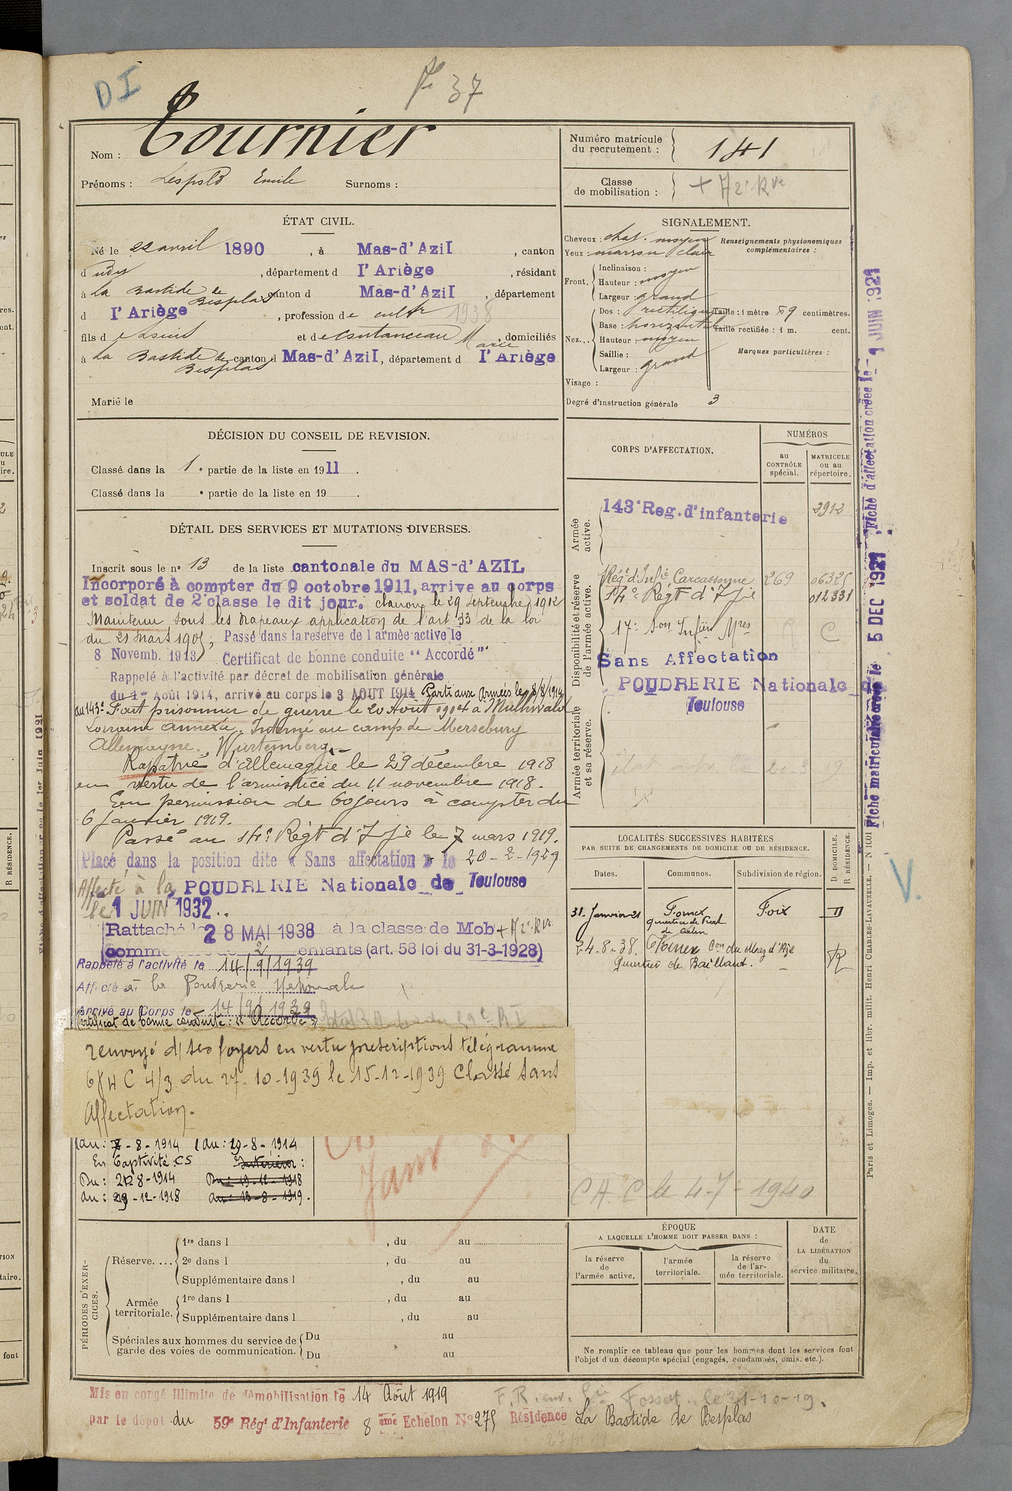 DI
37
Nom : Tournier
Prénoms : Léopold Emile Surnoms :
Numéro matricule du recrutement : 141
Classe de mobilisation : + 
ÉTAT CIVIL.
Né le 22 avril 1890, à Mas-d'Azil, canton
dudy, département d l'Ariège, résidant
à La Bastide de Besplas canton d Mas-d'Azil, département
d l'Ariège, profession de cultr 1938
fils d et de Coutanceau Marie, domiciliés
à La Bastide de Besplas canton d Mas-d'Azil, département d l'Ariège
Marié le
SIGNALEMENT.
Cheveux : chat. moyen
Yeux : marron clair
Renseignements physionomiques complémentaires :
Front. Inclinaison :
Hauteur : moyen
Largeur : grand
Nez... Dos : rectiligne
Base : horizontal
Hauteur : moyen
Saillie :
Largeur : grand
Taille : 1 mètre 69 centimètres.
Taille rectifiée : 1 m. cent.
Marques particulières :
Visage :
Degré d'instruction générale 3
DÉCISION DU CONSEIL DE REVISION.
Classé dans la 1e partie de la liste en 1911.
Classé dans la e partie de la liste en 19
DÉTAIL DES SERVICES ET MUTATIONS DIVERSES.
Inscrit sous le n° 13 de la liste cantonale du MAS-d'AZIL
Incorporé à compter du 9 octobre 1911, arrive au corps
et soldat de 2e classe le dit jour. Clairon le 29 septembre 1912
Maintenu sous les drapeaux application de l'art 33 de la loi
du 21 mars 1905; Passé dans la réserve de l'armée active le
8 Novemb. 1913; Certificat de bonne conduite "Accordé"
Rappelé à l'activité par décret de mobilisation générale
du 1er Août 1914, arrivé au corps le 3 AOUT 1914 Parti aux Armées le 8/8/1914
au 143e Fait prisonnier de guerre le 20 Août 1914 à Muhlwald
Lorraine annexée. Interné au camp de Mersebury
Allemagne. Wurtemberg.
Rapatrié d'Allemagne le 29 décembre 1918
en vertu de l'armistice du 11 novembre 1918.
En permission de 60 jours à compter du
6 janvier 1919.
Passé au 14e Régt d'Ifie le 7 mars 1919.
Placé dans la position dite « Sans affectation » le 20-2-1929
Affecté à la POUDRERIE Nationale de Toulouse
le 1 JUIN 1932.
Rattaché le 28 MAI 1938 à la classe de Mob
comme 2 enfants (art. 58 loi du 31-3-1928)
Rappelé à l'activité le 14/9/1939
Affecté à la Poudrerie Nationale
Arrivé au Corps le 14/9/1939
Certificat de bonne conduite : "Accordé"
renvoyé d/ses foyers en vertu prescriptions télégramme
C 4/3 du 27-10-1939 le 15-12-1939 Classé Sans
affectation.
au : 7-8-1914 au : 19-8-1914
En Captivité CS Intérieur :
Du : 20-8-1914 Du : 29-12-1918
au : 29-12-1918 au : 13-8-1919.
CORPS D'AFFECTATION.
NUMÉROS
au CONTRÔLE spécial.
MATRICULE ou au répertoire.
Armée active.
143e Reg. d'infanterie 2912
Disponibilité et réserve de l'armée active.
Régt d'Infie Carcassonne 269 06325
14e Régt d'Ifie 012331
17e Son Infirs Mres C
Sans Affectation
POUDRERIE Nationale de
Toulouse
Armée territoriale et sa réserve.
LOCALITÉS SUCCESSIVES HABITÉES
PAR SUITE DE CHANGEMENTS DE DOMICILE OU DE RÉSIDENCE.
Dates. Communes. Subdivision de région. D. DOMICILE. R. RÉSIDENCE.
31 Janvier 21 Fornex Foix D
24.8.38. Fornex Con du Mas d'Azil R
Quartier de Baillart.
C.A.C le 4-7-1940
ÉPOQUE
A LAQUELLE L'HOMME DOIT PASSER DANS :
la réserve de l'armée active.
l'armée territoriale.
la réserve de l'armée territoriale.
DATE de LA LIBÉRATION du service militaire.
Ne remplir ce tableau que pour les hommes dont les services font
l'objet d'un décompte spécial (engagés, condamnés, omis, etc.).
PÉRIODES D'EXERCICES.
Réserve.... 1re dans l , du au
2e dans l , du au
Supplémentaire dans l , du au
Armée territoriale. 1re dans l , du au
Supplémentaire dans l , du au
Spéciales aux hommes du service de garde des voies de communication. Du au
Du au
Mis en congé illimité de démobilisation le 14 Août 1919
par le dépôt du 59e Régt d'Infanterie 8ème Echelon N° 275 Résidence La Bastide de Besplas
Fiche matriculaire créée le 5 DEC 1921
Fiche d'affectation créée le 1 JUIN 1921
Paris et Limoges. — Imp. et libr. milit. Henri CHARLES-LAVAUZELLE. — N 1601
V.